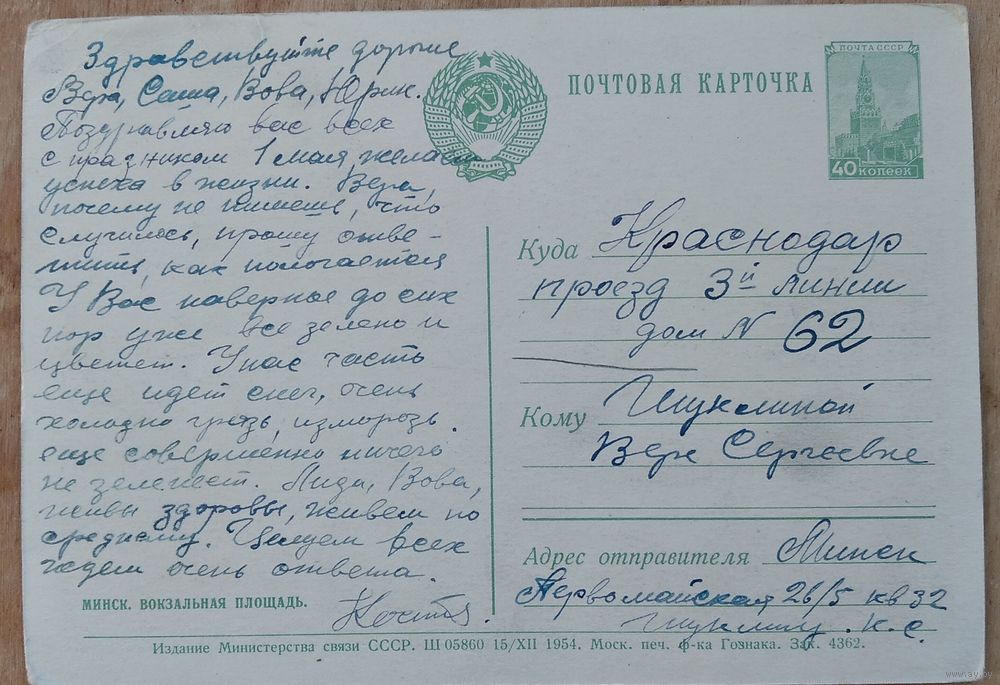 Здравствуйте дорогие
Вера, Саша, Вова, Юрик.
Поздравляю вас всех
с праздником 1 мая, желаем
успеха в жизни. Вера,
почему не пишешь, что
случилось, прошу отве-
тить, как полагается
У Вас наверное до сих
пор уже все зелено и
цветет. У нас часть
еще идет снег, очень
холодно грязь, изморозь.
еще совершенно ничего
не зеленеет. Лида, Вова,
живы здоровы, живем по
среднему. Целуем всех
ждем очень ответа.
Костя.
МИНСК. ВОКЗАЛЬНАЯ ПЛОЩАДЬ.
ПОЧТОВАЯ КАРТОЧКА
ПОЧТА СССР
40 КОПЕЕК
Куда Краснодар
проезд 3й линии
дом N 62
Кому Шуклиной
Вере Сергеевне
Адрес отправителя Минск
Первомайская 26/5 кв 32
Шуклин К.С.
Издание Министерства связи СССР. Ш 05860 15/XII 1954. Моск. печ. ф-ка Гознака. Зак. 4362.
www.ay.by